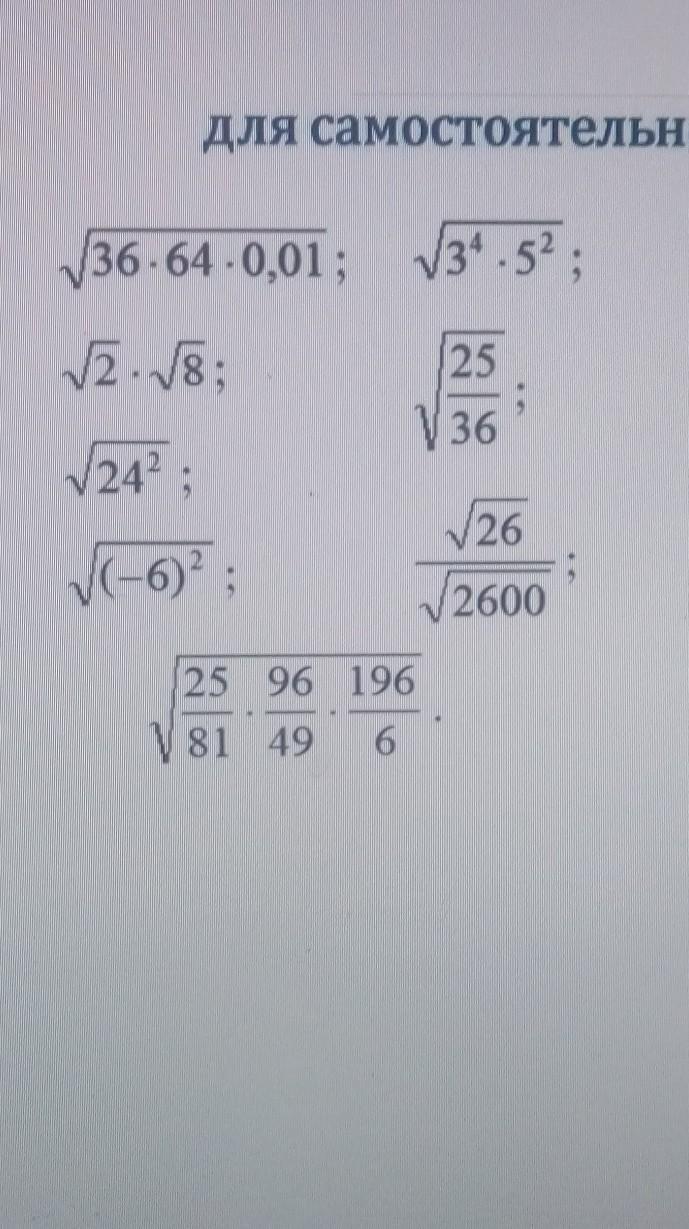 для самостоятельн
√36·64·0,01; √3⁴·5²;
√2·√8; √25/36;
√24²;
√(−6)²; √26/√2600;
√25/81·96/49·196/6.